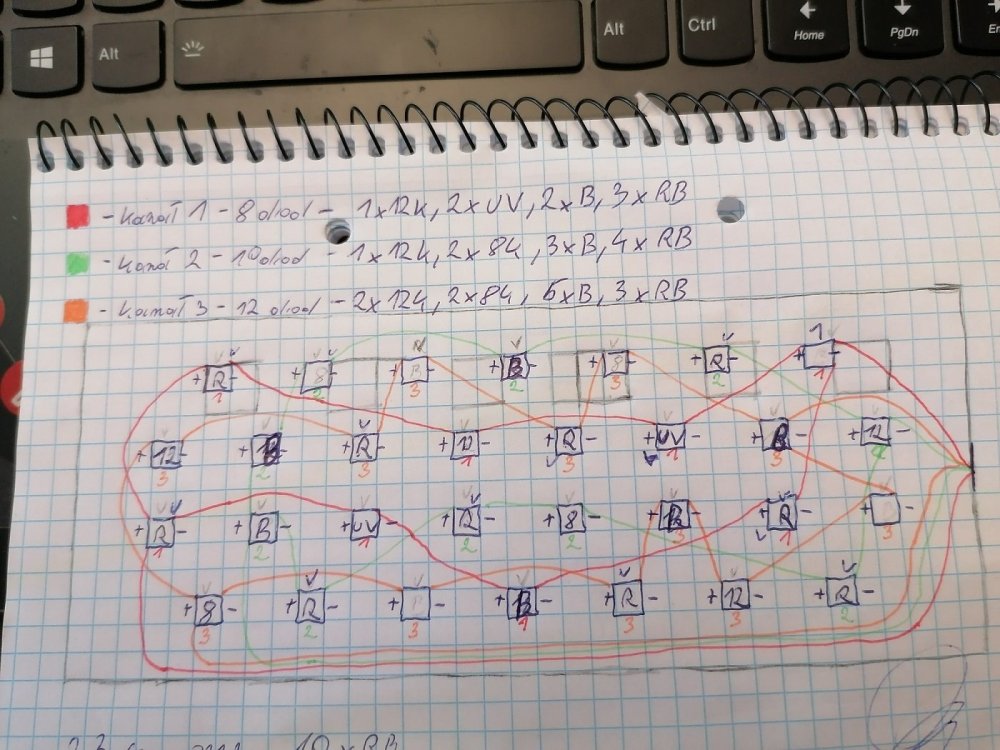 Alt
Alt
Ctrl
Home
PgDn
- Kanał 1 - 8 diod - 1x12k, 2xUV, 2xB, 3xRB
- Kanał 2 - 10 diod - 1x12k, 2x8k, 3xB, 4xRB
- Kanał 3 - 12 diod - 2x12k, 2x8k, 5xB, 3xRB
+ R - + 8 - + B - + B - + 8 - + R - + -
1 2 3 2 3 2 1
+ 12 - + B - + R - + - + R - + UV - + B - + 12 -
3 2 3 1 3 1 3 2
+ R - + B - + UV - + R - + 8 - + B - + R - + B -
1 2 1 2 2 3 1 3
+ 8 - + R - + B - + B - + R - + 12 - + R -
3 2 3 1 3 3 2
10 x RB